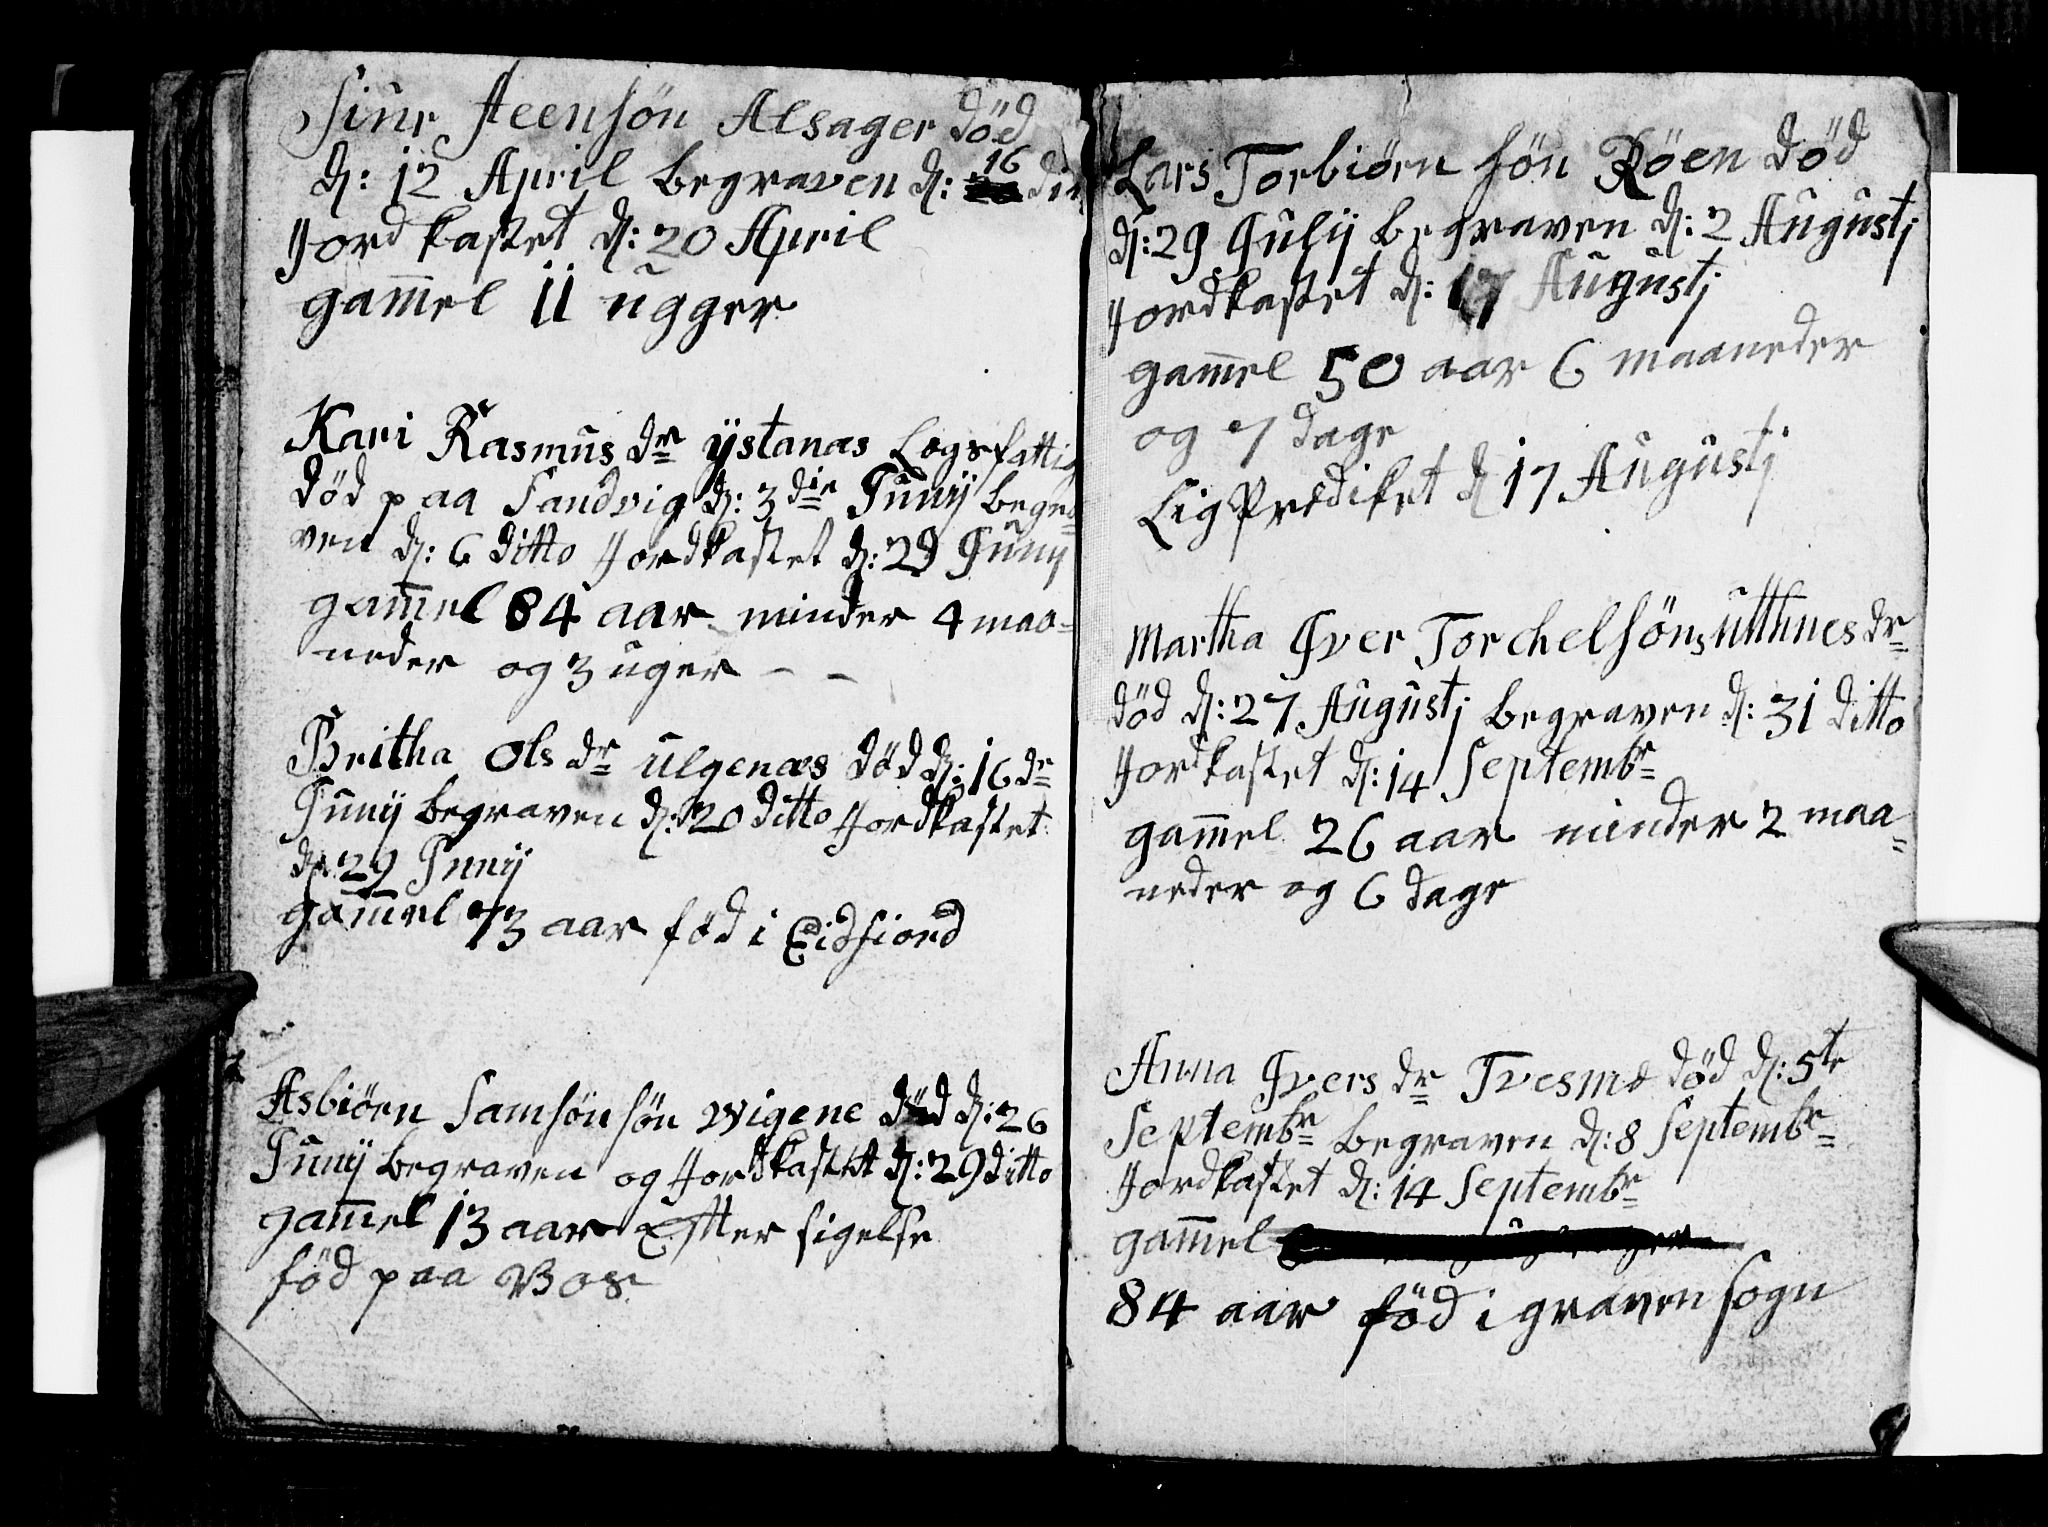 Siur Steensøn Alsager død
d: 12 April begraven d: 16 dit
Jordkastet d: 20 April
gam̄el 11 ugger
Kari Rasmus dr ystanæs Logsfattig
død paa Sandvig d: 3die Junÿ begra=
ven d: 6 ditto Jordkastet d: 29 Junÿ
gam̄el 84 aar minder 4 maa=
neder og 3 uger – –
Britha Ols dr ulgenæs død d: 16 de
Junÿ begraven d: 20 ditto Jordkastet
d: 29 Junÿ
gam̄el 73 aar fød i Eidfiord
Asbiörn Samsøn søn wigene död d: 26
Junÿ begraven og Jordkastet d: 29 ditto
gam̄el 13 aar Efter sigelse
fød paa Vos
Lars Torbiörn søn Röen död
d: 29 Julÿ begraven d: 2 Augustj
Jordkastet d: 17 Augustj
gam̄el 50 aar 6 maaneder
og 7 dage
LigPrediket d 17 Augustj
Martha Iver Torchelsöns utthnes dr
död d: 27 Augustj begraven d: 31 ditto
Jordkastet d: 14 Septembr
gam̄el 26 aar minder 2 maa=
neder og 6 dage
Anna Ivers dr Tvesme död d: 5te
Septembr begraven d: 8 Septembr
Jordkastet d: 14 Septembr
gam̄el
84 aar född i graven sogn